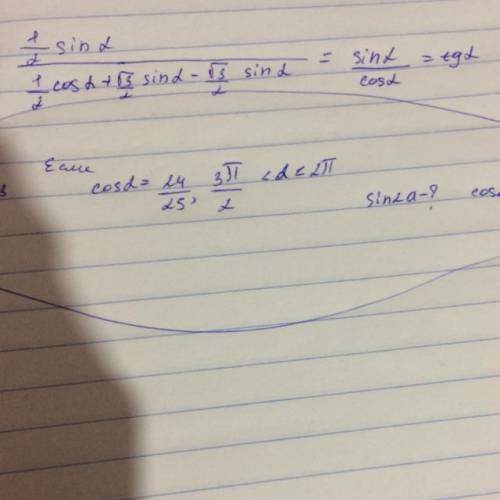 1/2 sin α / (1/2 cos α + √3/2 sin α − √3/2 sin α) = sin α / cos α = tg α
Если
cos α = 24/25, 3π/2 < α < 2π sin2α − ? cos